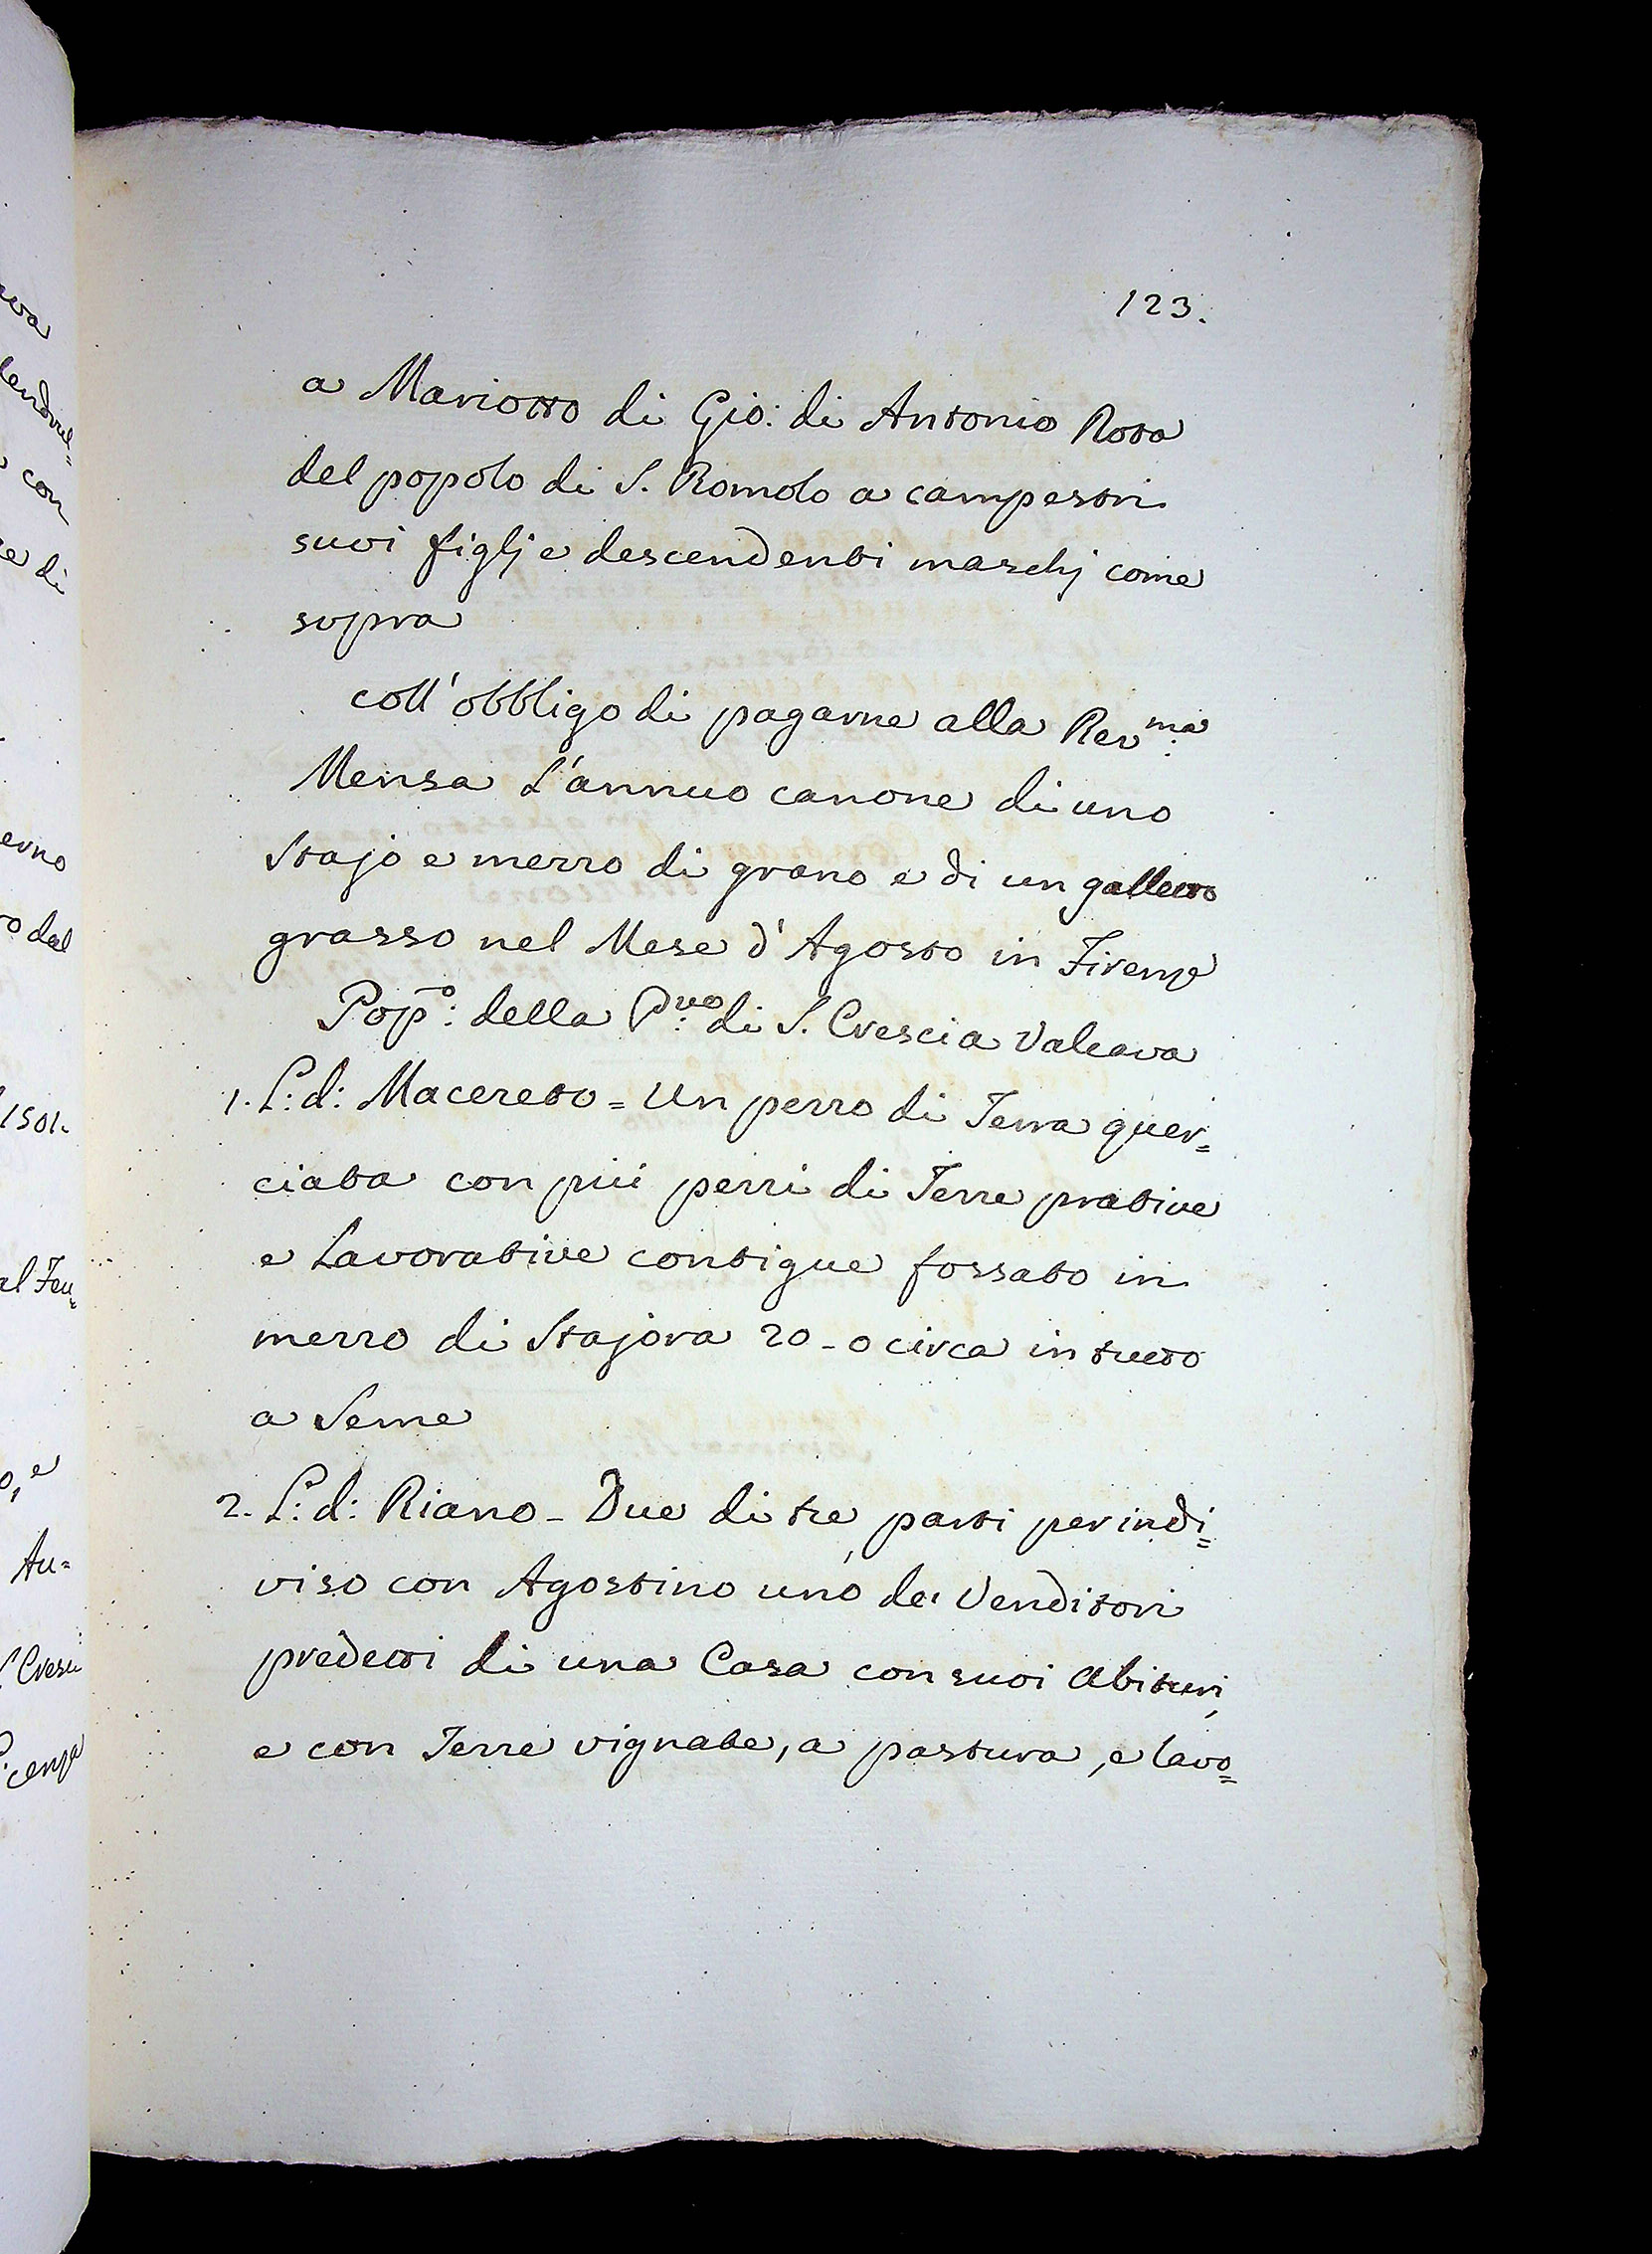 123.
a Mariotto di Gio: di Antonio Rota
del popolo di S. Romolo a campestri
suoi figlj e descendenti maschj come
sopra
coll'obbligo di pagarne alla Rev.ma
Mensa L'annuo canone di uno
Stajo e mezzo di grano e di un galletto
grasso nel Mese d'Agosto in Firenze
Pop.o: della P.ve di S. Crescia Valcava
1. L: d: Macereto = Un pezzo di Terra quer=
ciata con più pezzi di Terre prative
e Lavorative contigue fossato in
mezzo di Stajora 20 - o circa in tutto
a Seme
2. L: d: Riano - Due di tre parti per indi=
viso con Agostino uno dei Venditori
predetti di una Casa con suoi Abituri,
e con Terre vignate, a pastura, e lavo=
con
di
erno
o dal
1501.
al Feu=
o, e
Au=